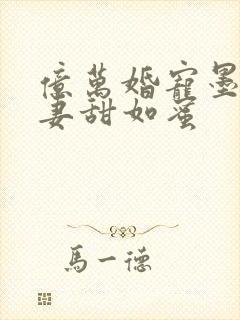 億萬婚寵墨
妻甜如蜜
馬一德